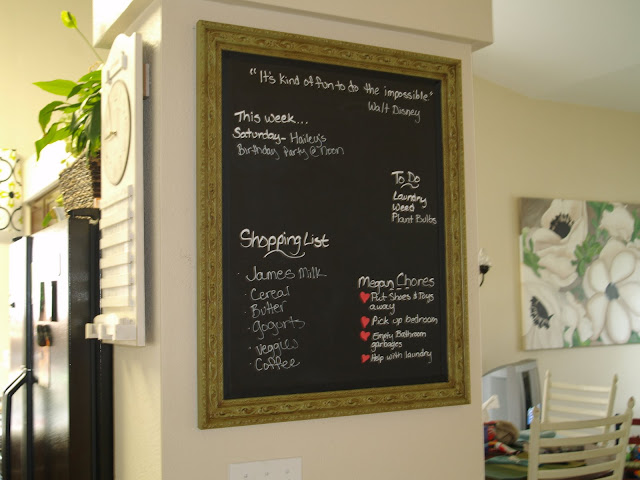 "It's kind of fun to do the impossible."
Walt Disney
This week...
Saturday- Hailey's
Birthday Party @ Noon
To Do
Laundry
Weed
Plant Bulbs
Shopping List
· James Milk
· Cereal
· Butter
· Yogurts
· veggies
· Coffee
Megan Chores
Put Shoes & Toys
away
Pick up bedroom
Empty Bathroom
garbages
Help with laundry